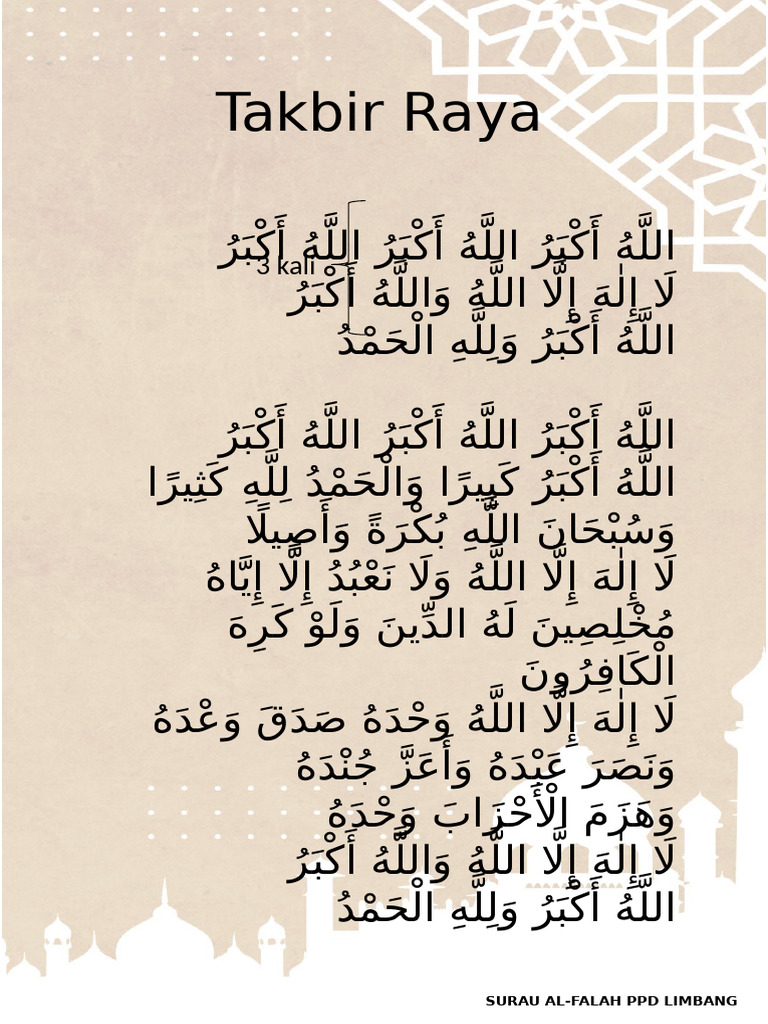 Takbir Raya
اللَّهُ أَكْبَرُ اللَّهُ أَكْبَرُ اللَّهُ أَكْبَرُ
3 kali
لَا إِلٰهَ إِلَّا اللَّهُ وَاللَّهُ أَكْبَرُ
اللَّهُ أَكْبَرُ وَلِلَّهِ الْحَمْدُ
اللَّهُ أَكْبَرُ اللَّهُ أَكْبَرُ اللَّهُ أَكْبَرُ
اللَّهُ أَكْبَرُ كَبِيرًا وَالْحَمْدُ لِلَّهِ كَثِيرًا
وَسُبْحَانَ اللَّهِ بُكْرَةً وَأَصِيلًا
لَا إِلٰهَ إِلَّا اللَّهُ وَلَا نَعْبُدُ إِلَّا إِيَّاهُ
مُخْلِصِينَ لَهُ الدِّينَ وَلَوْ كَرِهَ
الْكَافِرُونَ
لَا إِلٰهَ إِلَّا اللَّهُ وَحْدَهُ صَدَقَ وَعْدَهُ
وَنَصَرَ عَبْدَهُ وَأَعَزَّ جُنْدَهُ
وَهَزَمَ الْأَحْزَابَ وَحْدَهُ
لَا إِلٰهَ إِلَّا اللَّهُ وَاللَّهُ أَكْبَرُ
اللَّهُ أَكْبَرُ وَلِلَّهِ الْحَمْدُ
SURAU AL-FALAH PPD LIMBANG